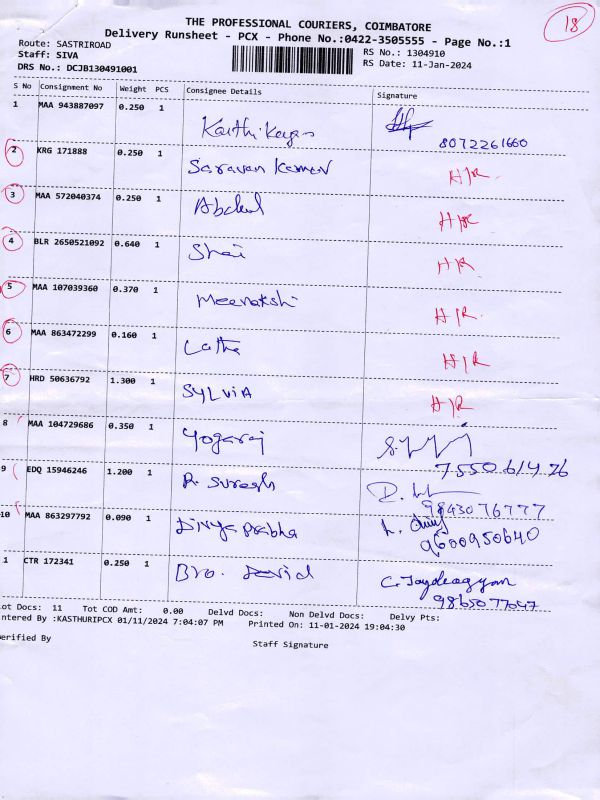 18
THE PROFESSIONAL COURIERS, COIMBATORE
Delivery Runsheet - PCX - Phone No.:0422-3505555 - Page No.:1
Route: SASTRIROAD RS No.: 1304910
Staff: SIVA RS Date: 11-Jan-2024
DRS No.: DCJB130491001
S No Consignment No Weight PCS Consignee Details Signature
1 MAA 943887097 0.250 1
8072261660
2 KRG 171888 0.250 1 Saravan Kumar H/R
3 MAA 572040374 0.250 1 Abdul H/R
4 BLR 2650521092 0.640 1 H/R
5 MAA 107039360 0.370 1 Meenakshi H/R
6 MAA 863472299 0.160 1 Latha H/R
7 HRD 50636792 1.300 1 SYLVIA H/R
8 MAA 104729686 0.350 1 Yogaraj
7550 61476
9 EDQ 15946246 1.200 1 R. Suresh
9843076777
10 MAA 863297792 0.090 1 Divya prabha
9600950640
1 CTR 172341 0.250 1 Bro. David
9865077047
ot Docs: 11 Tot COD Amt: 0.00 Delvd Docs: Non Delvd Docs: Delvy Pts:
ntered By :KASTHURIPCX 01/11/2024 7:04:07 PM Printed On: 11-01-2024 19:04:30
erified By Staff Signature